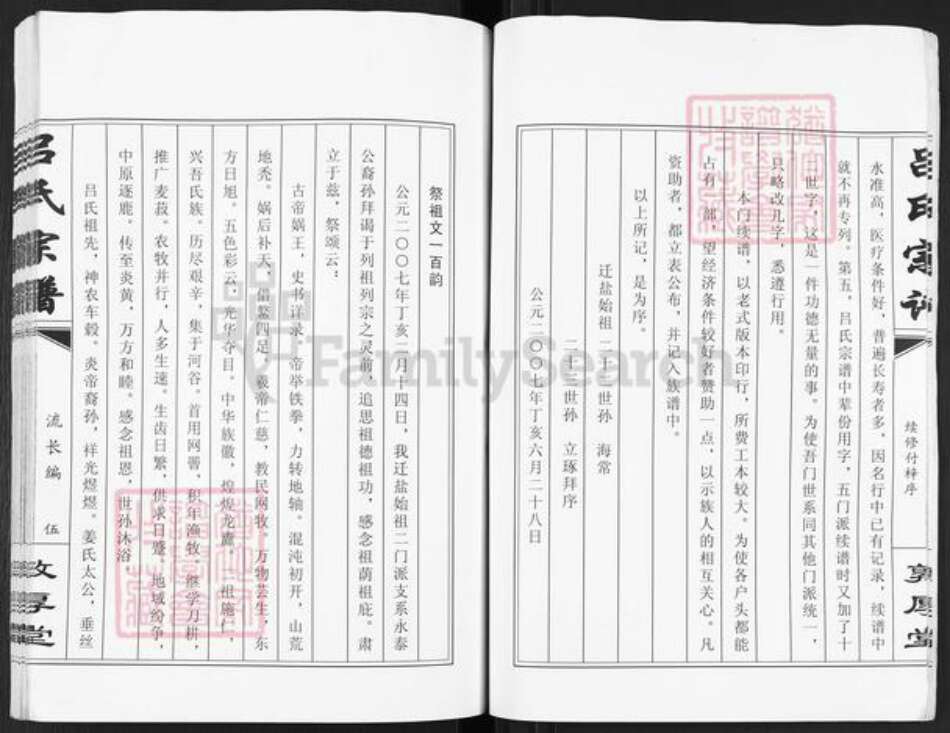 水准高，医疗条件好，普遍长寿者多，因名行中已有记录，续谱中
就不再专列。第五，吕氏宗谱中辈份用字，五门派续谱时又加了十
世字，这是一件功德无量的事。为使吾门世系同其他门派统一，
只略改几字，悉遵行用。
本门续谱，以老式版本印行，所费工本较大。为使各户头都能
占有一部，望经济条件较好者赞助一点，以示族人的相互关心。凡
资助者，都立表公布，并记入族谱中。
以上所记，是为序。
迁盐始祖 二十世孙 海常
二十二世孙 立琢拜序
公元二〇〇七年丁亥六月二十八日
续修付梓序
敦厚堂
祭祖文一百韵
公元二〇〇七年丁亥二月十四日，我迁盐始祖二门派支系永泰
公裔孙拜谒于列祖列宗之灵前，追思祖德祖功，感念祖荫祖庇。肃
立于兹，祭颂云：
古帝娲王，史书详录。帝举铁拳，力转地轴。混沌初开，山荒
地秃。娲后补天，借鳌四足。羲帝仁慈，教民网牧。万物芸生，东
方日旭。五色彩云，光华夺目。中华族徽，煌煌龙纛。祖施仁，
兴吾氏族。历尽艰辛，集于河谷。首用网罟，积年渔牧。继学刀耕，
推广麦菽。农牧并行，人多生速。生齿日繁，供求日蹙。地域纷争，
中原逐鹿。传至炎黄，万方和睦。感念祖恩，世孙沐浴
吕氏祖先，神农车毂。炎帝裔孙，样光煜煜。姜氏太公，垂丝
吕氏宗谱
流长编
伍
敦厚堂
FamilySearch